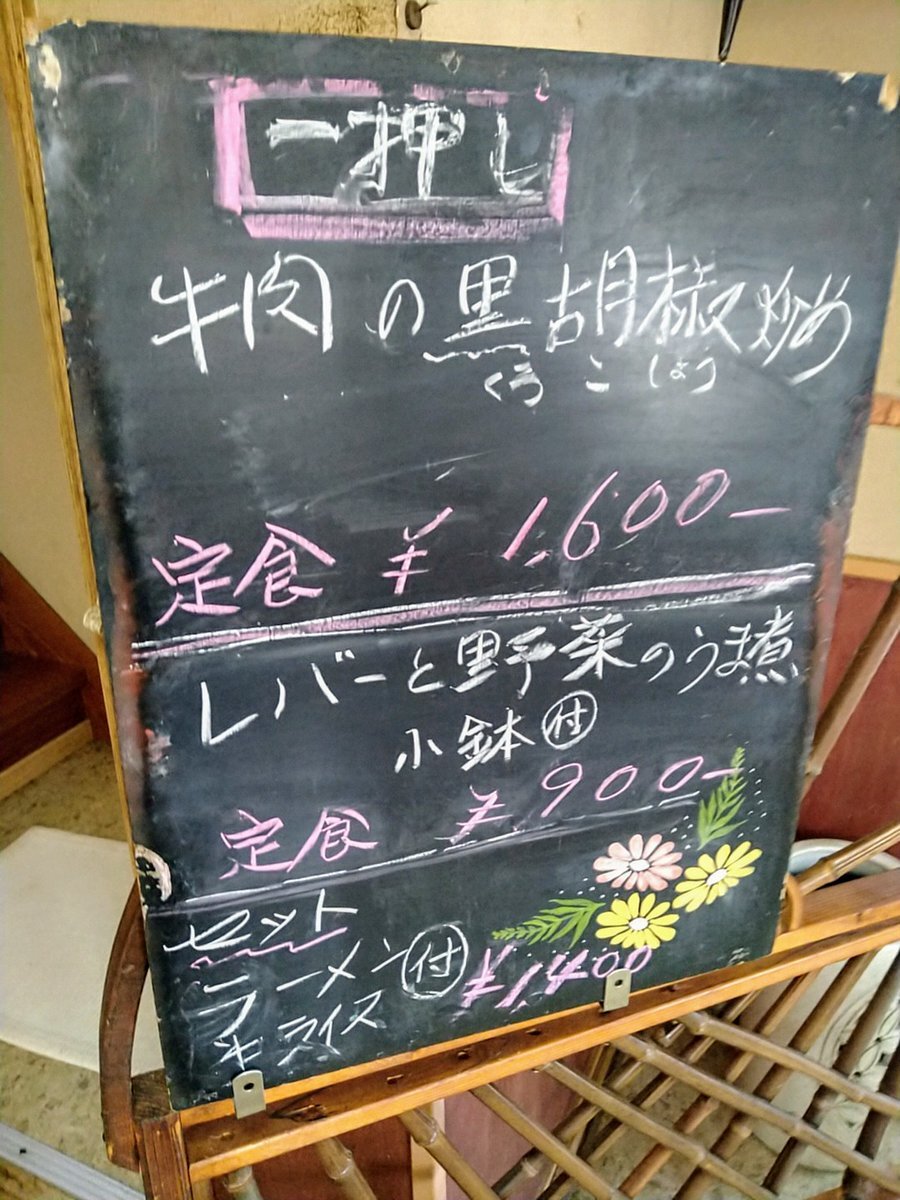 一押し
牛肉の黒胡椒炒め
くろこしょう
定食 ¥1,600-
レバーと野菜のうま煮
小鉢付
定食 ¥900-
セット
ラーメン付 ¥1400
ライス